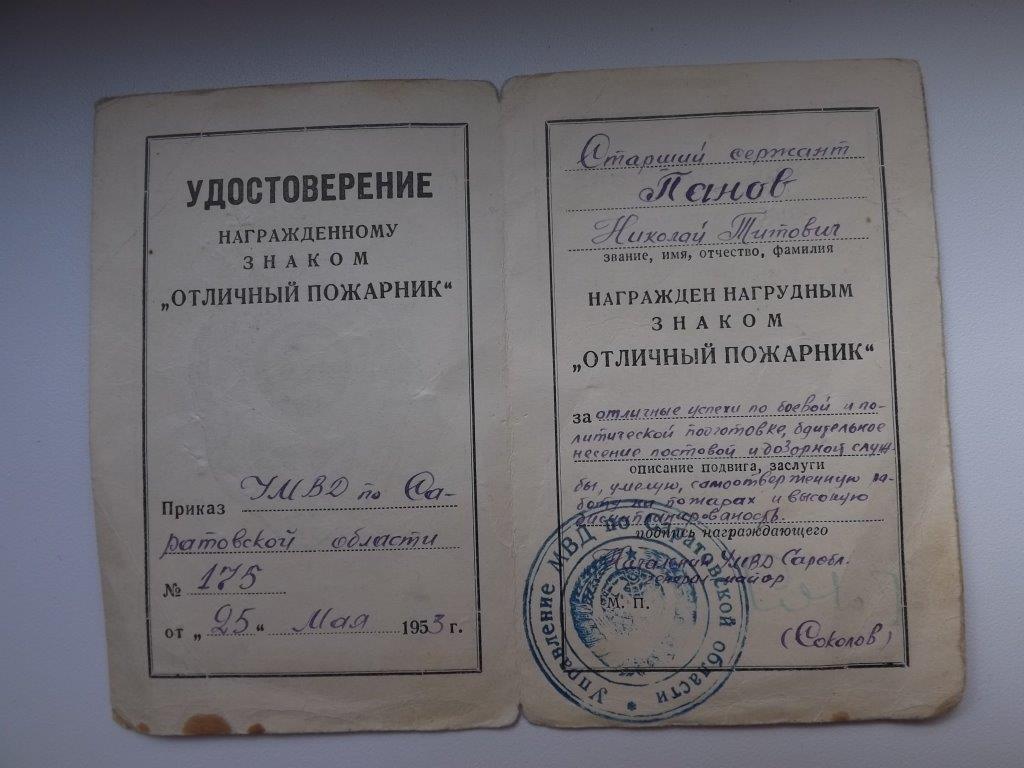 УДОСТОВЕРЕНИЕ
НАГРАЖДЕННОМУ
ЗНАКОМ
„ОТЛИЧНЫЙ ПОЖАРНИК“
Приказ УМВД по Са-
ратовской области
№ 175
от „25“ Мая 1953 г.
Старший сержант
Панов
Николай Титович
звание, имя, отчество, фамилия
НАГРАЖДЕН НАГРУДНЫМ
ЗНАКОМ
„ОТЛИЧНЫЙ ПОЖАРНИК“
за отличные успехи по боевой и по-
литической подготовке, бдительное
несение постовой и дозорной служ-
описание подвига, заслуги
бы, умелую, самоотверженную ра-
боту на пожарах и высокую
дисциплинированость.
подпись награждающего
Начальник УМВД Саробл.
генерал-майор
М. П.
(Соколов)
Управление МВД по Саратовской области